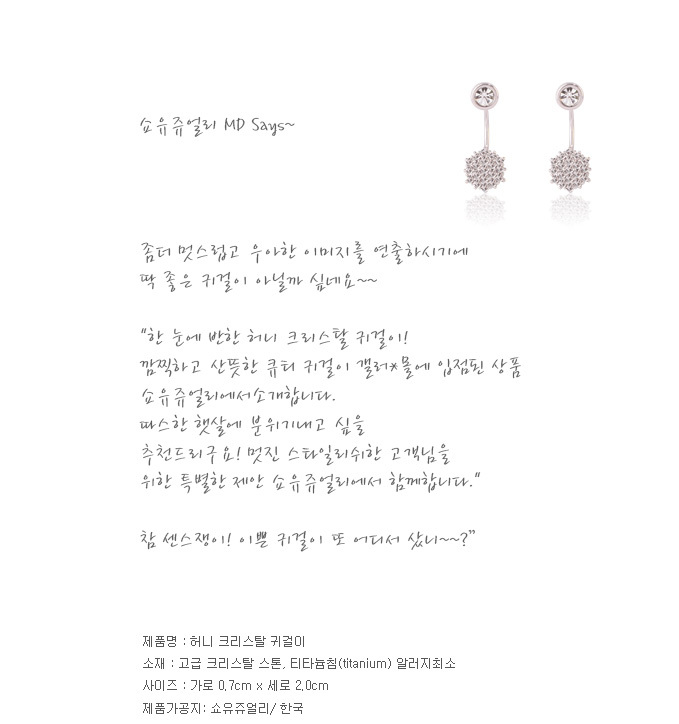 쇼유쥬얼리 MD Says~
좀더 멋스럽고 우아한 이미지를 연출하시기에
딱 좋은 귀걸이 아닐까 싶네요~~
"한 눈에 반한 허니 크리스탈 귀걸이!
깜찍하고 산뜻한 큐티 귀걸이 갤러*몰에 입점된 상품
쇼유쥬얼리에서소개합니다.
따스한 햇살에 분위기내고 싶을
추천드리구요! 멋진 스타일리쉬한 고객님을
위한 특별한 제안 쇼유쥬얼리에서 함께합니다."
참 센스쟁이! 이쁜 귀걸이 또 어디서 샀니~~?"
제품명 : 허니 크리스탈 귀걸이
소재 : 고급 크리스탈 스톤, 티타늄침(titanium) 알러지최소
사이즈 : 가로 0.7cm x 세로 2.0cm
제품가공지: 쇼유쥬얼리/ 한국